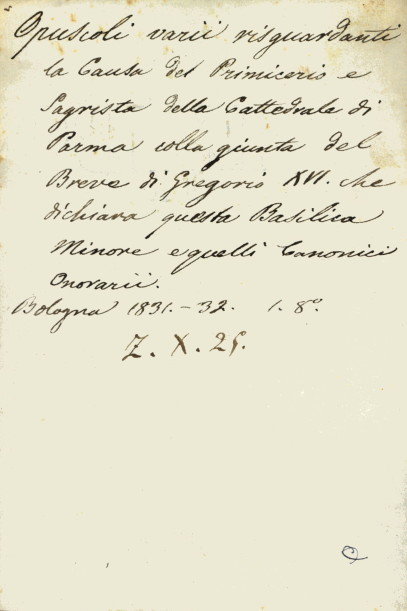 Opuscoli varii risguardanti
la Causa del Primicerio e
Sagrista della Cattedrale di
Parma colla giunta del
Breve di Gregorio XVI. che
dichiara questa Basilica
Minore e quelli Canonici
Onorarii.
Bologna 1831.-32. 1. 8.°
Z. X. 25.